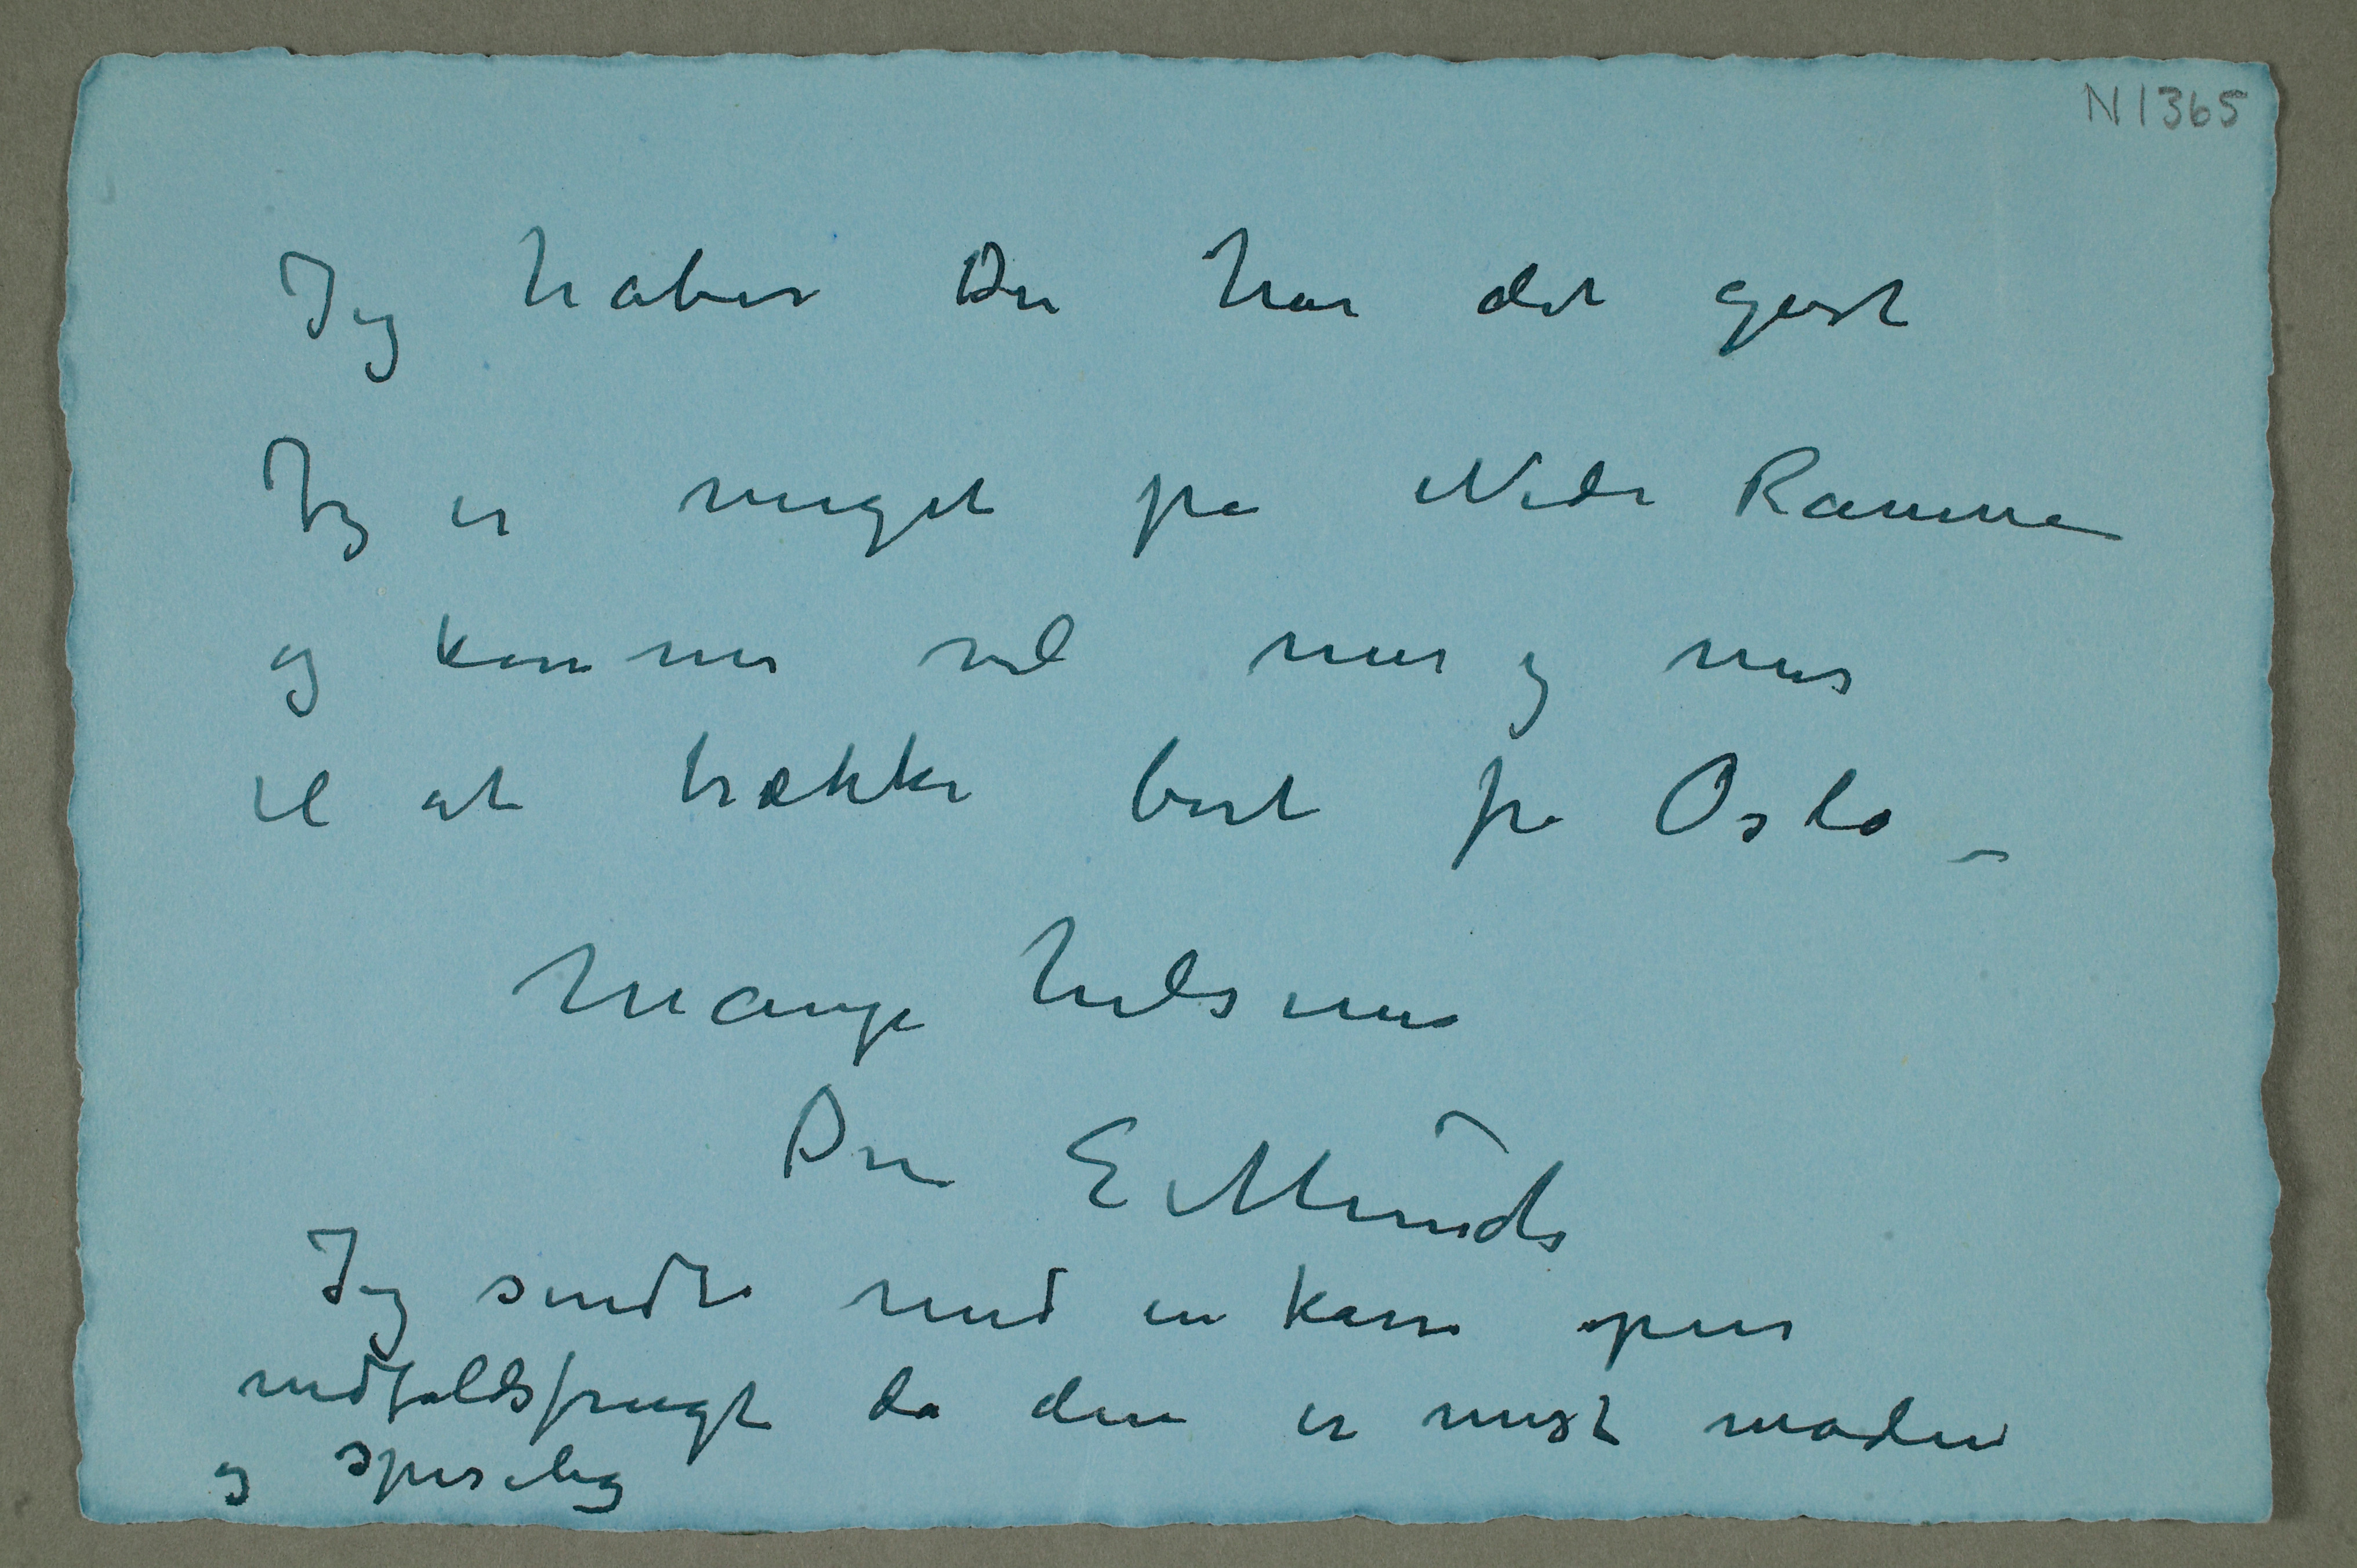 N 1365
Jeg håber Du har det godt
Jeg er meget på Nedre Ramme
og kommer vel mer og mer
til at trække bort fra Oslo –
Mange hilsener
Din E Munch
Jeg sendte med en kasse
nedfaldsfrugt da den er mest moden
og spiselig